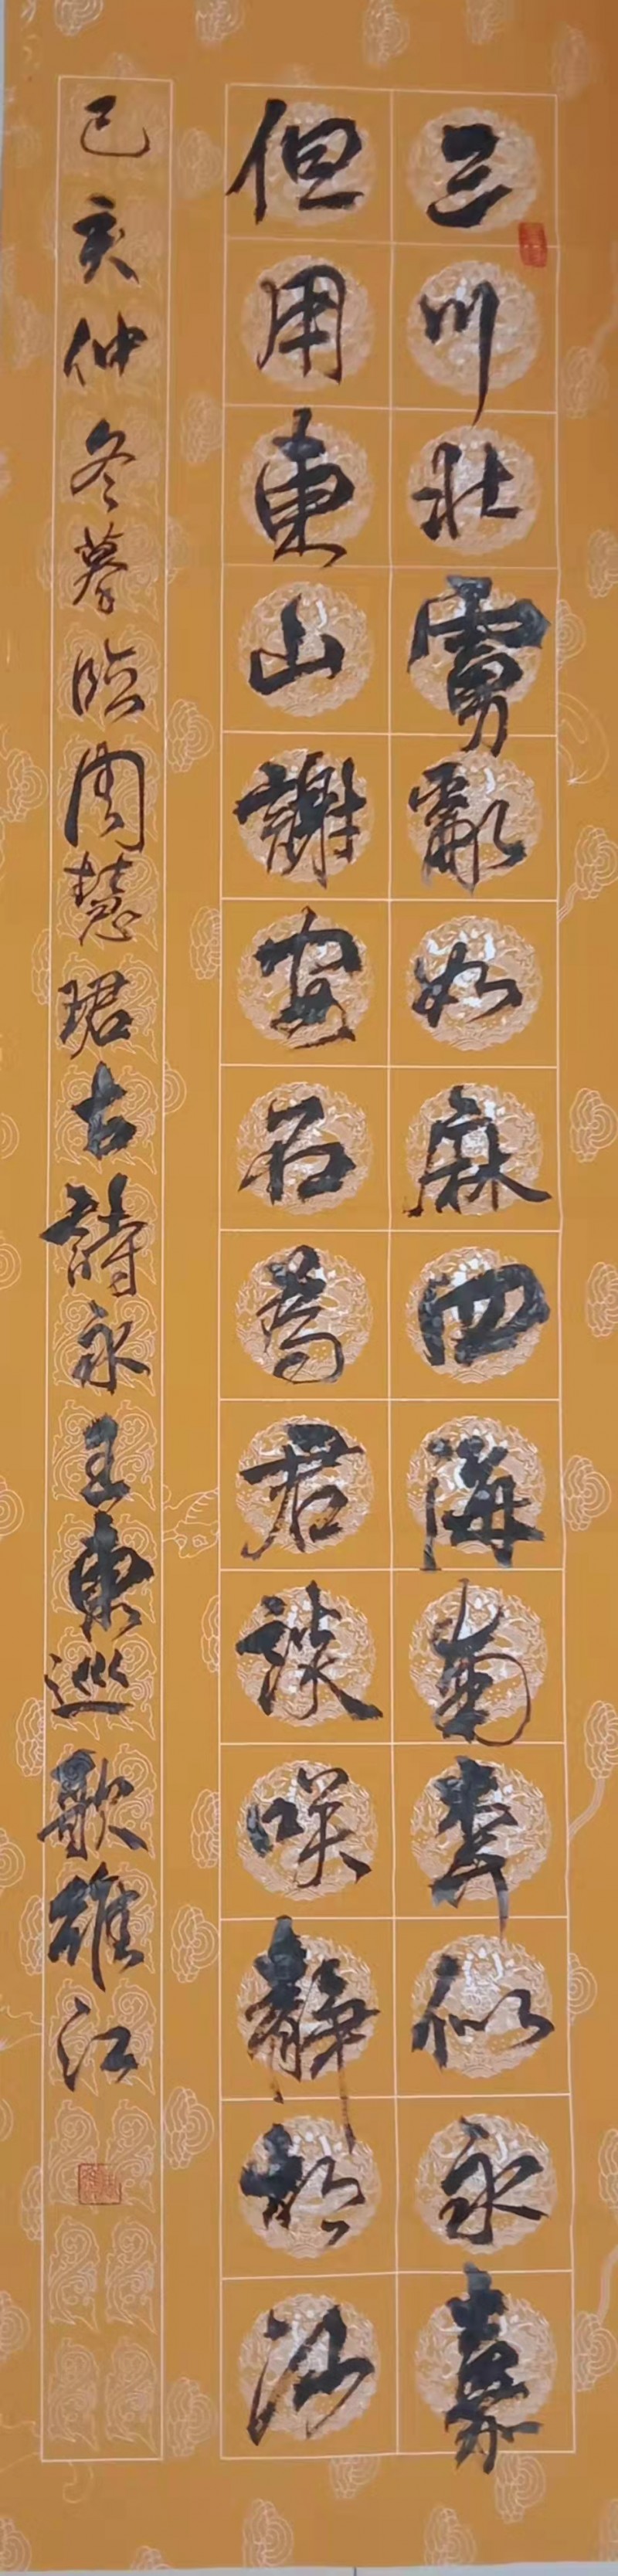 三川北虜亂如麻四海南奔似永嘉
但用東山謝安石為君談咲靜胡沙
己亥仲冬摹臨周慧珺古詩永王東巡歌雄江